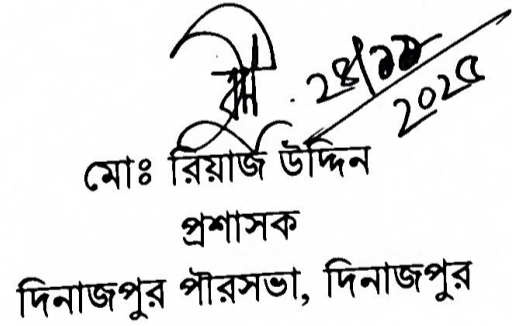 ২৪/১১
২০২৫
মোঃ রিয়াজ উদ্দিন
প্রশাসক
দিনাজপুর পৌরসভা, দিনাজপুর